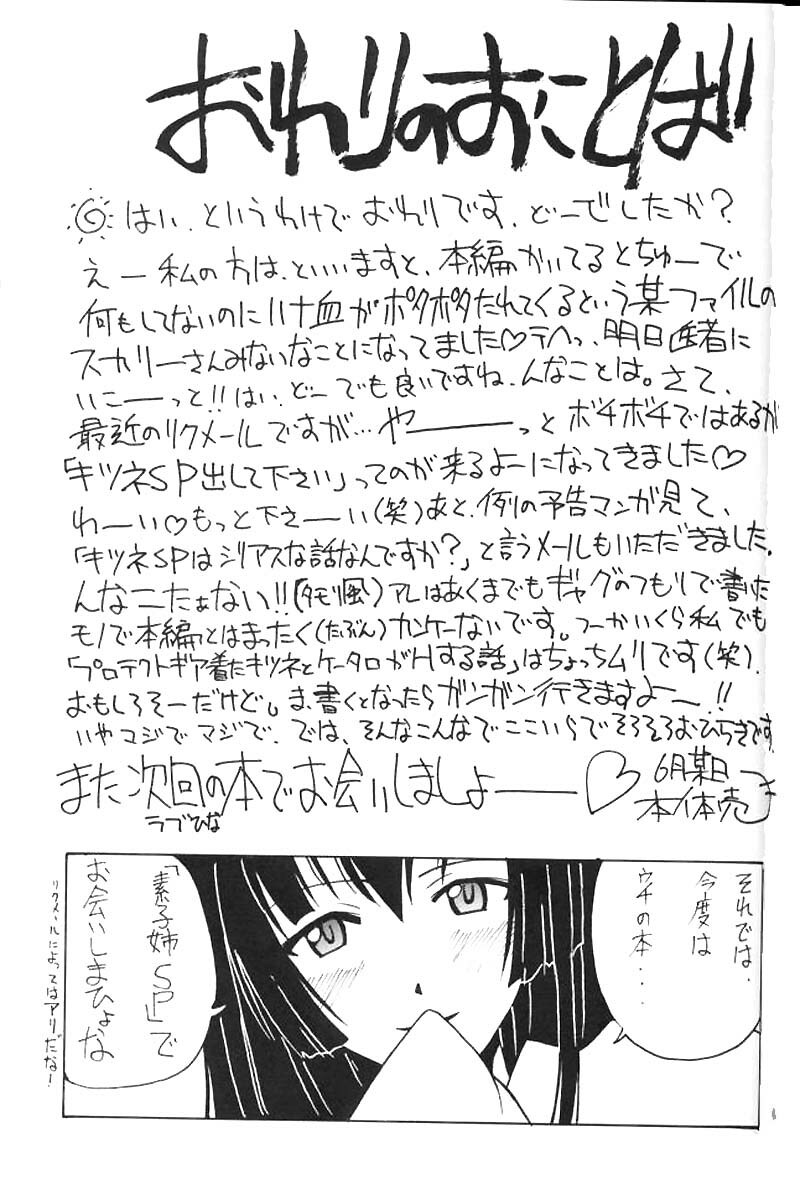 おわりのおことば
はい、というわけでおわりです、どーでしたか？
えー私の方は、といいますと、本編かいてるとちゅーで
何もしてないのにハナ血がポタポタたれてくるという某ファイルの
スカリーさんみないなことになってました♡テヘっ、明日医者に
いこーーっと!!はい、どーでも良いですね、んなことは。さて、
最近のリクメールですが…やーーーっとボチボチではあるが
「キツネSP出して下さい」ってのが来るよーになってきました♡
わーい♡もっと下さーーい(笑)あと、例の予告マンガ見て、
「キツネSPはシリアスな話なんですか？」と言うメールもいただきました。
んなこたぁない!!(タモリ風)アレはあくまでもギャグのつもりで書いた
モノで本編とはまったく(たぶん)カンケーないです。つーかいくら私でも
「プロテクトギア着たキツネとケータロがHする話」はちょっちムリです(笑)。
おもしろそーだけど。ま、書くとなったらガンガン行きますよー!!
いやマジでマジで、では、そんなこんなでここいらでそろそろおひらきです
また次回の本でお会いしましょーーー♡
ラブひな
6月某日
本体売つき
それでは、
今度は
ウチの本・・・
「素子姉SP」で
お会いしまひょな
リクメールによってはアリだな！